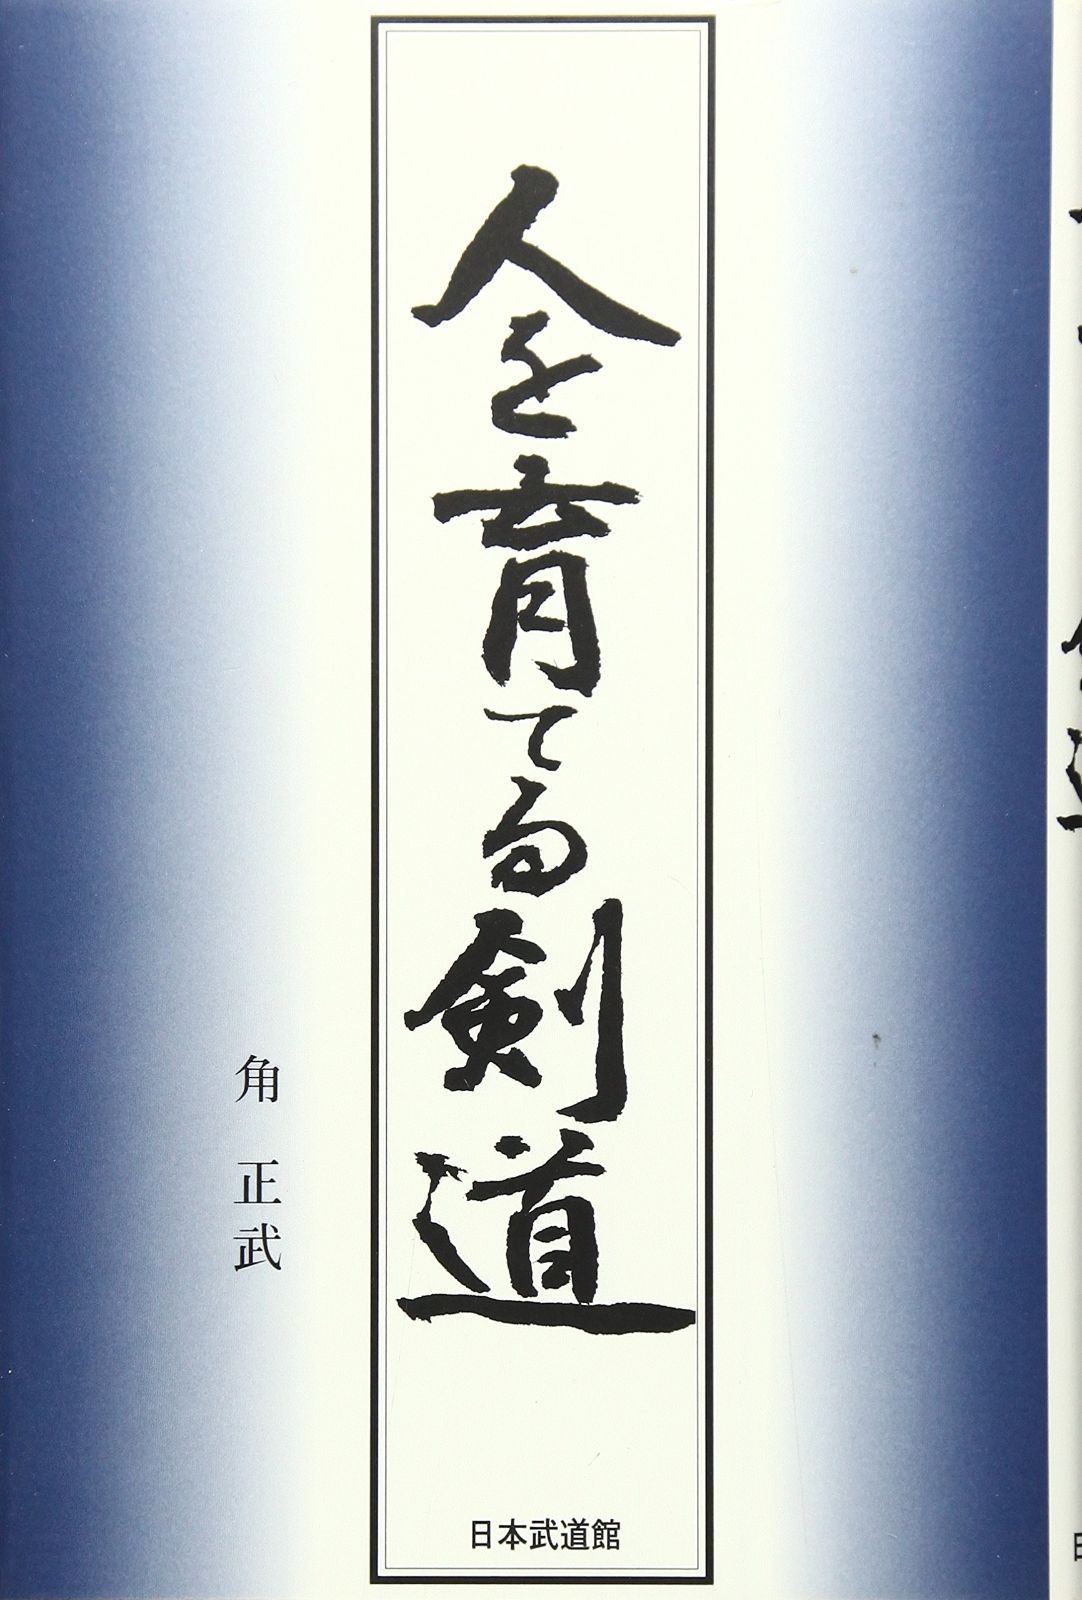 人を育てる剣道
角 正武
日本武道館